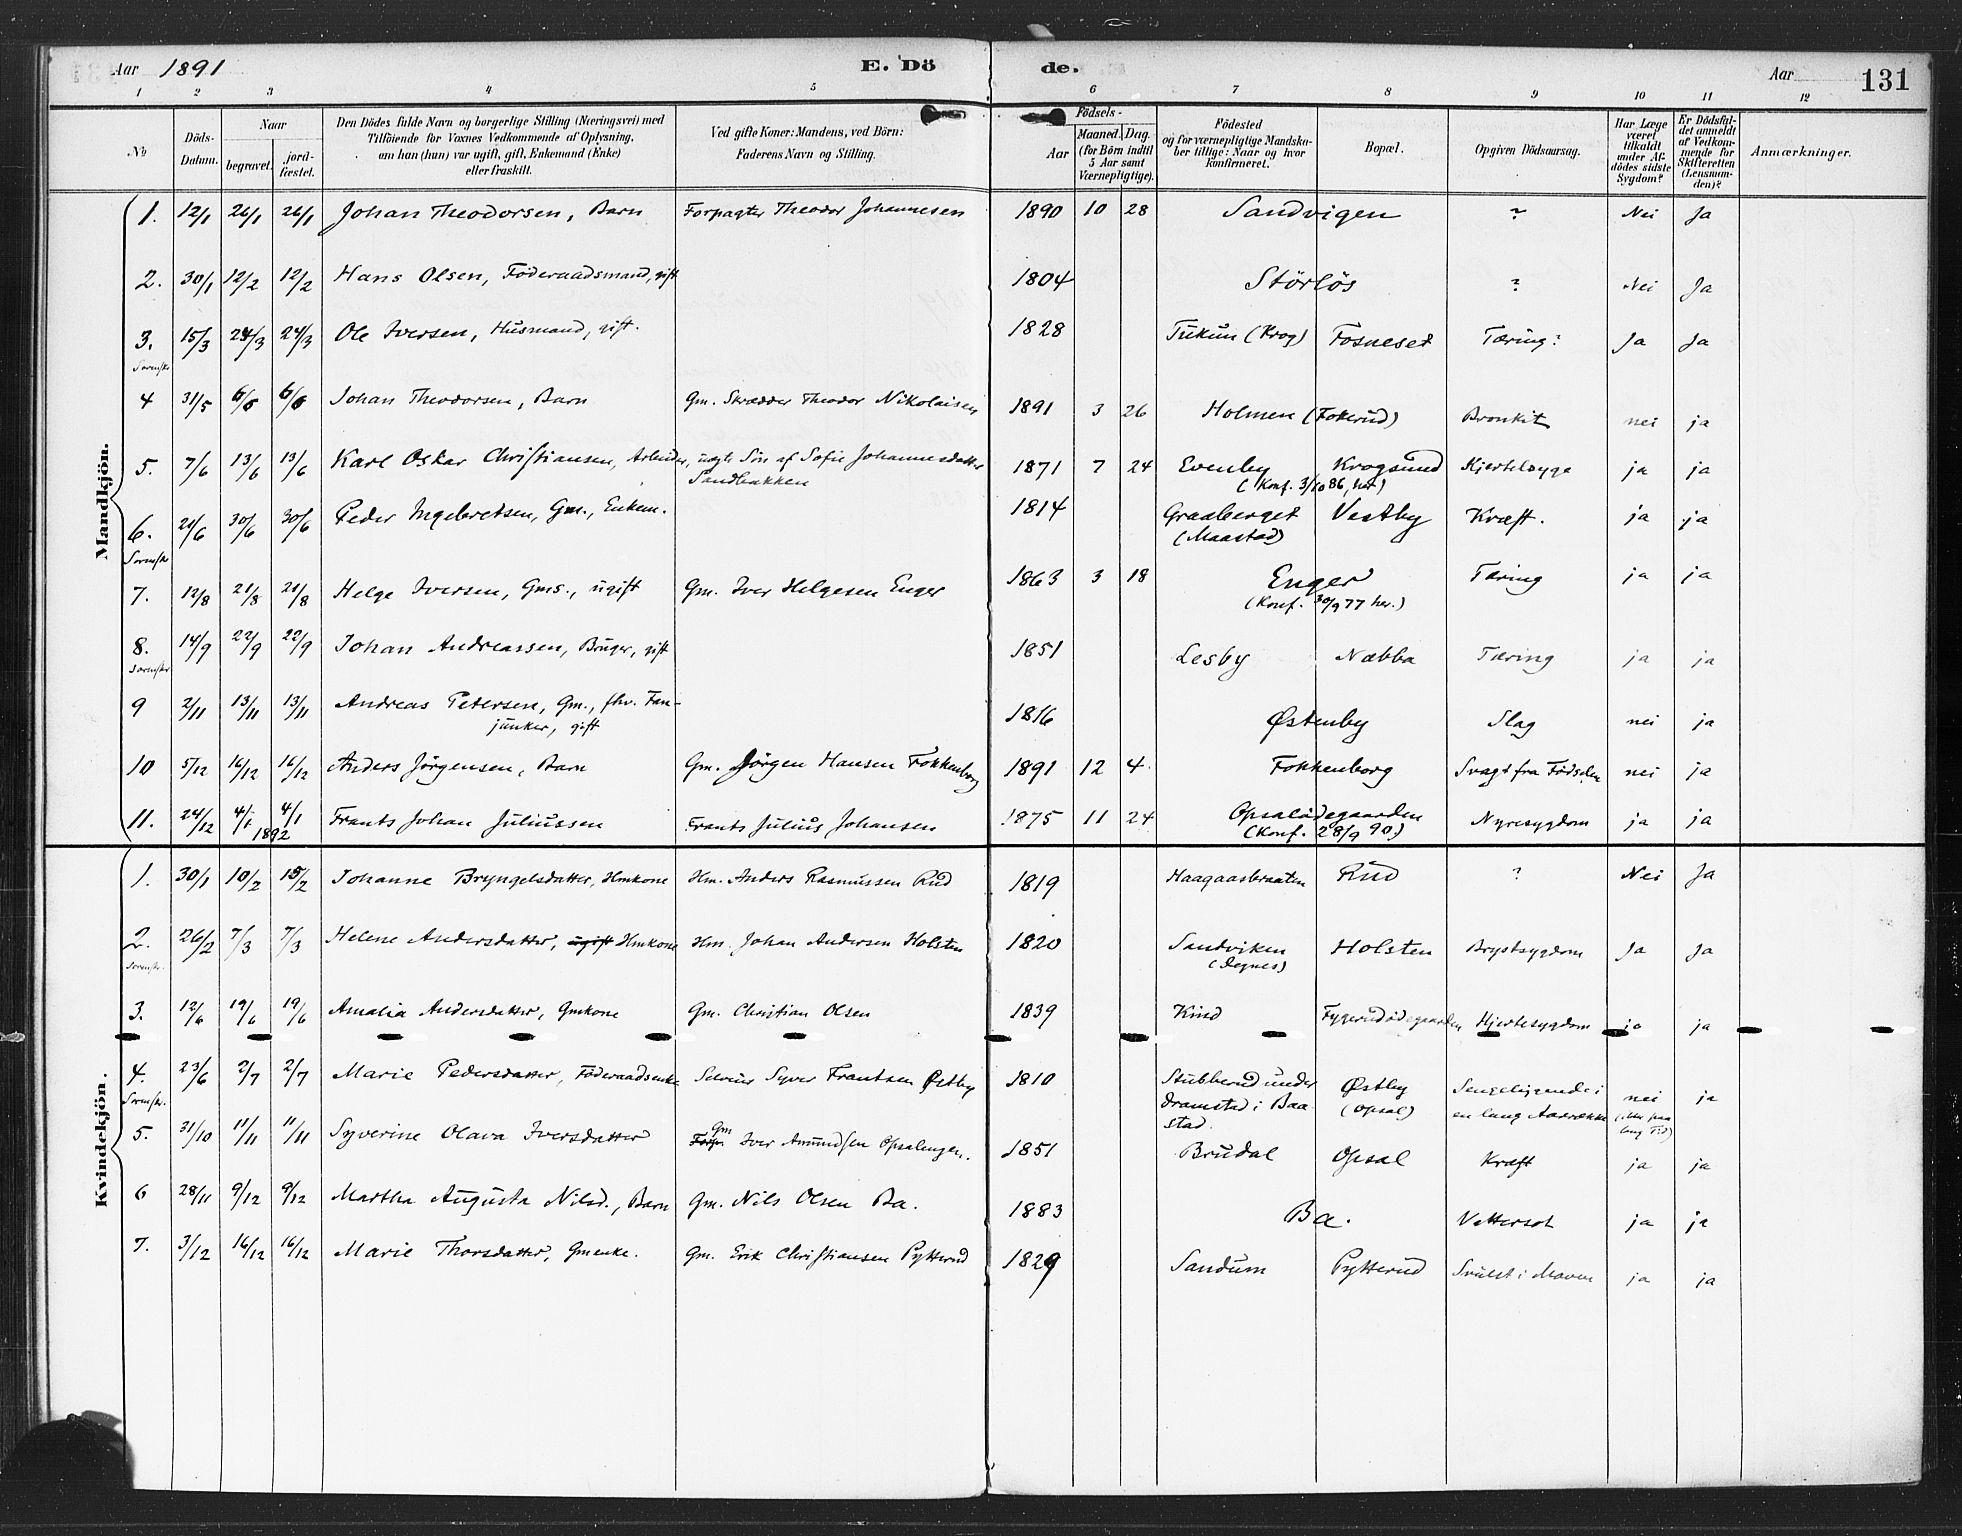 Aar 1891 E. Dö de. Aar 131
1 2 3 4 5 6 7 8 9 10 11 12
No Döds-Datum. Naar begravet. jord-fæstet. Den Dödes fulde Navn og borgerlige Stilling (Næringsvei) med Tilföiende for Voxnes Vedkommende af Oplysning, om han (hun) var ugift, gift, Enkemand (Enke) eller fraskilt. Ved gifte Koner: Mandens, ved Börn: Faderens Navn og Stilling. Födsels- Aar Maaned. Dag. (for Börn indtil 5 Aar samt Værnepligtige). Födested og for værnepligtige Mandskaber tillige: Naar og hvor konfirmeret. Bopæl. Opgiven Dödsaarsag. Har Læge været tilkaldt under Afdödes sidste Sygdom? Er Dödsfaldet anmeldt af Vedkommende for Skifteretten (Lensmanden)? Anmærkninger.
Mandkjön.
1. 12/1 26/1 26/1 Johan Theodorsen, Barn Forpagter Theodor Johannesen 1890 10 28 Sandvigen ? Nei Ja
2. 30/1 12/2 12/2 Hans Olsen, Föderaadsmand, gift 1804 Störlös ? Nei Ja
3. 15/3 24/3 24/3 Ole Iversen, Husmand, gift. 1828 Tukun (Krog) Fosneset Tæring? Ja Ja
4 31/5 6/6 6/6 Johan Theodorsen, Barn Gm. Skrædder Theodor Nikolaisen 1891 3 26 Holmen (Fokerud) Bronkit nei ja
5. 7/6 13/6 13/6 Karl Oskar Christiansen, Arbeider, uægte Sön af Sofie Johannesdatter Sandbakken 1871 7 24 Evenby Krogsund Hjertelæyge ja ja
(Konf. 3/10 86, her)
6. 21/6 30/6 30/6 Peder Ingebretsen, Gm., Enkem. 1814 Graaberget Vestby Kræft. ja ja
(Maastad)
7. 12/8 21/8 21/8 Helge Iversen, Gms., ugift Gm. Iver Helgesen Enger 1863 3 18 Enger Tæring ja ja
(Konf. 30/9 77 her.)
8. 14/9 22/9 22/9 Johan Andreassen, Bruger, gift 1851 Lesby Næbba Tæring ja ja
9 2/11 13/11 13/11 Andreas Petersen, Gm., fhv. Fan-
junker, gift 1816 Østenby Slag nei ja
10 5/12 16/12 16/12 Anders Jörgensen, Barn Gm. Jörgen Hansen Fokkenborg 1891 12 4 Fokkenborg Svagt fra Födselen nei ja
11. 24/12 4/1 4/1 Frants Johan Juliussen Frants Julius Johansen 1875 11 24 Opsalödegaarden Nyresygdom ja ja
1892 (Konf. 28/9 90.)
Kvindekjön.
1. 30/1 10/2 15/2 Johanne Bryngelsdatter, Hmkone Hm. Anders Rasmussen Rud 1819 Haagaasbraaten Rud ? Nei Ja
2. 26/2 7/3 7/3 Helene Andersdatter, ugift Hmkone Hm. Johan Andersen Holsten 1820 Sandviken Holsten Brystsygdom Ja Ja
(Degnes)
3. 12/6 19/6 19/6 Amalia Andersdatter, Gmkone Gm. Christian Olsen 1839 Kind Fygerudödegaarden Hjertesygdom ja ja
4. 23/6 2/7 2/7 Marie Pedersdatter, Föderaadsenke Syver Frantsen Østby 1810 Stubberud under Østby Sengeliggende i nei ja
Dramstad i Baa- (Opsal) en lang Aarrække (ikke paa
stad. lang Tid)
5. 31/10 11/11 11/11 Syverine Olava Iversdatter Gm Iver Amundsen Opsalengen. 1851 Brudal Opsal Kræft ja ja
6 28/11 9/12 9/12 Martha Augusta Nilsd., Barn Gm. Nils Olsen Ba. 1883 Ba. Vattersot ja ja
7. 3/12 16/12 16/12 Marie Thorsdatter, Gmenke. Gm. Erik Christiansen Pytterud 1829 Sandum Pytterud Svulst i Maven ja ja